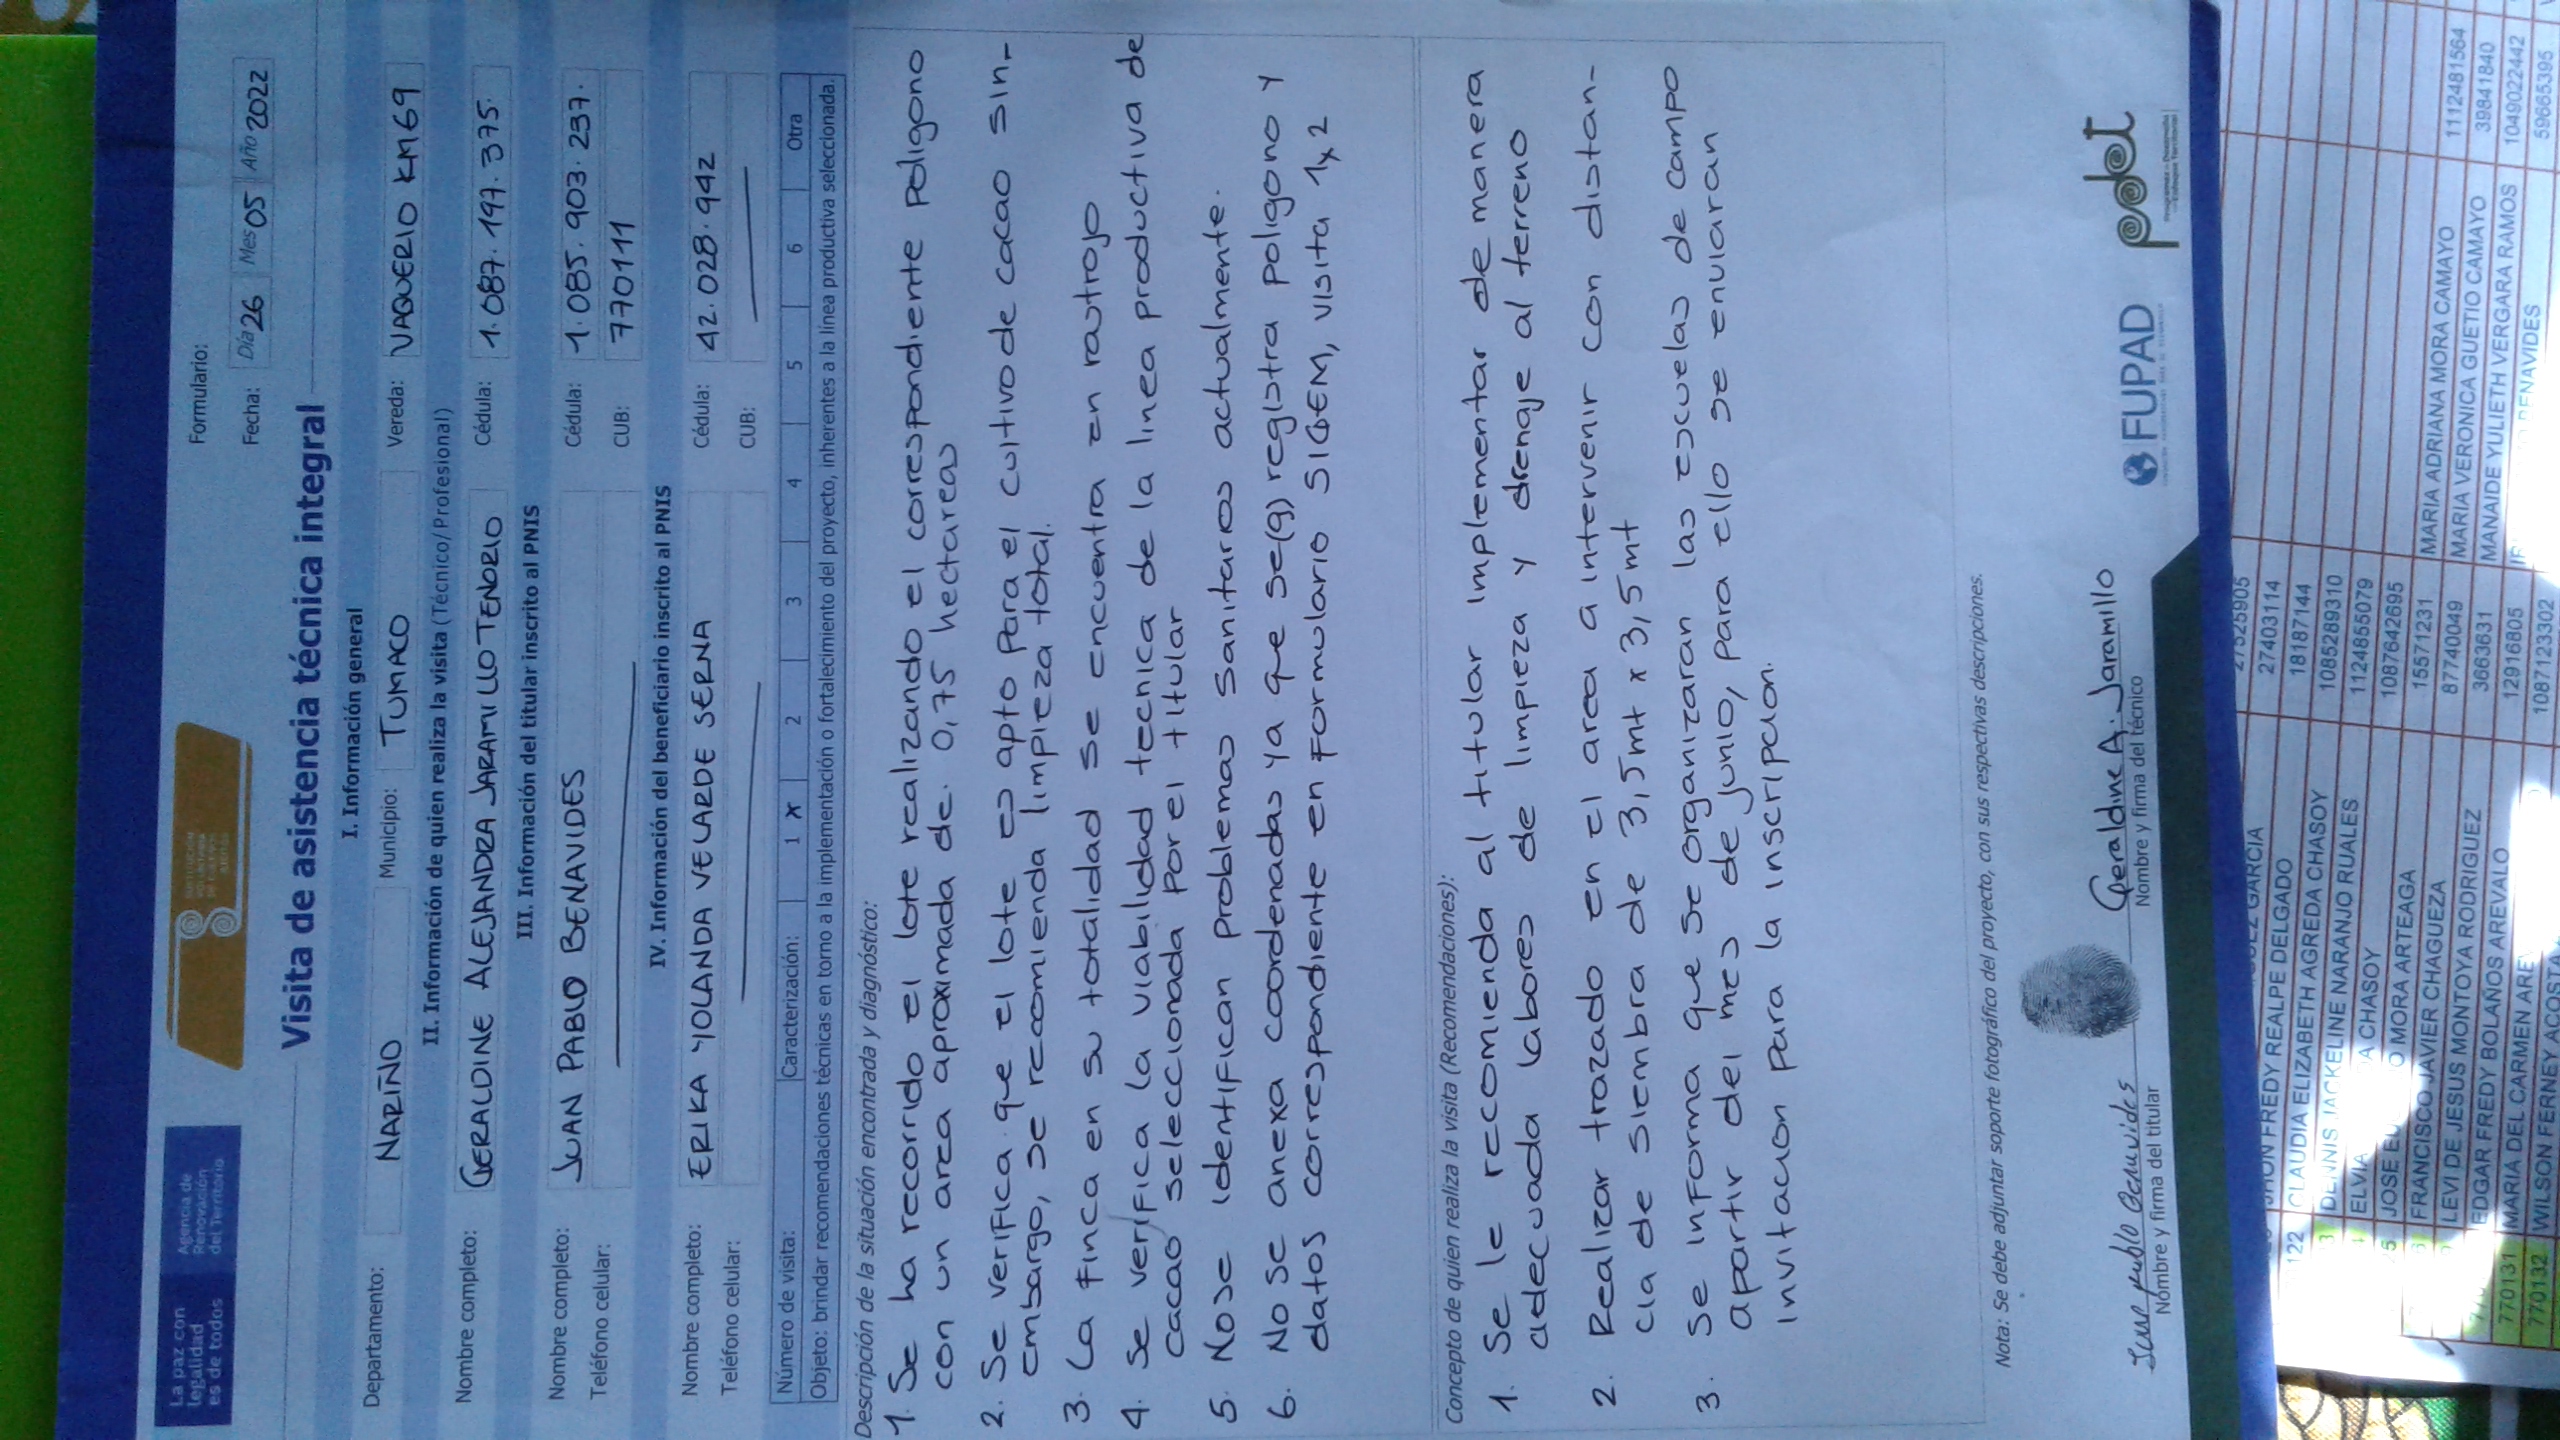 La paz con
legalidad
es de todos
Agencia de
Renovación
del Territorio
Formulario:
Fecha: Día 26 Mes 05 Año 2022
Visita de asistencia técnica integral
I. Información general
Departamento: NARIÑO Municipio: TUMACO Vereda: VAQUERIO KM69
II. Información de quien realiza la visita (Técnico/Profesional)
Nombre completo: GERALDINE ALEJANDRA JARAMILLO TENORIO Cédula: 1.087.197.375.
III. Información del titular inscrito al PNIS
Nombre completo: JUAN PABLO BENAVIDES Cédula: 1.085.903.237.
Teléfono celular: CUB: 770111
IV. Información del beneficiario inscrito al PNIS
Nombre completo: ERIKA YOLANDA VELARDE SERNA Cédula: 42.028.942
Teléfono celular: CUB:
Número de visita: Caracterización: 1 x 2 3 4 5 6 Otra
Objeto: brindar recomendaciones técnicas en torno a la implementación o fortalecimiento del proyecto, inherentes a la línea productiva seleccionada.
Descripción de la situación encontrada y diagnóstico:
1. Se ha recorrido el lote realizando el correspondiente poligono
con un area aproximada de. 0,75 hectareas
2. Se verifica que el lote es apto para el cultivo de cacao sin-
embargo, se recomienda limpieza total.
3. La finca en su totalidad se encuentra en rastrojo
4. Se verifica la viabilidad tecnica de la linea productiva de
cacao seleccionada por el titular
5. Nose identifican problemas sanitarios actualmente.
6. No se anexa coordenadas ya que se(g) registra poligono y
datos correspondiente en formulario SIGEM, visita 1x2
Concepto de quien realiza la visita (Recomendaciones):
1. Se le recomienda al titular implementar de manera
adecuada labores de limpieza y drenaje al terreno
2. Realizar trazado en el area a intervenir con distan-
cia de siembra de 3,5mt x 3,5mt
3. Se informa que se organizaran las escuelas de campo
apartir del mes de junio, para ello se enviaran
invitacion para la inscripcion.
Nota: Se debe adjuntar soporte fotográfico del proyecto, con sus respectivas descripciones.
Juan pablo Benavides
Nombre y firma del titular
Geraldine A. Jaramillo
Nombre y firma del técnico
FUPAD
pdet
27525905
GARCIA
FREDY REALPE DELGADO 27403114
122 CLAUDIA ELIZABETH AGREDA CHASOY 18187144
JACKELINE NARANJO RUALES 1085289310
ELVIA CHASOY 1124855079
JOSE MORA ARTEAGA 1087642695
FRANCISCO JAVIER CHAGUEZA 15571231 MARIA ADRIANA MORA CAMAYO 1112481564
LEVI DE JESUS MONTOYA RODRIGUEZ 87740049 MARIA VERONICA GUETIO CAMAYO 39841840
EDGAR FREDY BOLAÑOS AREVALO 3663631 MANAIDE YULIETH VERGARA RAMOS 1049022442
770131 MARIA DEL CARMEN 12916805 BENAVIDES 59665395
770132 WILSON FERNEY 1087123302